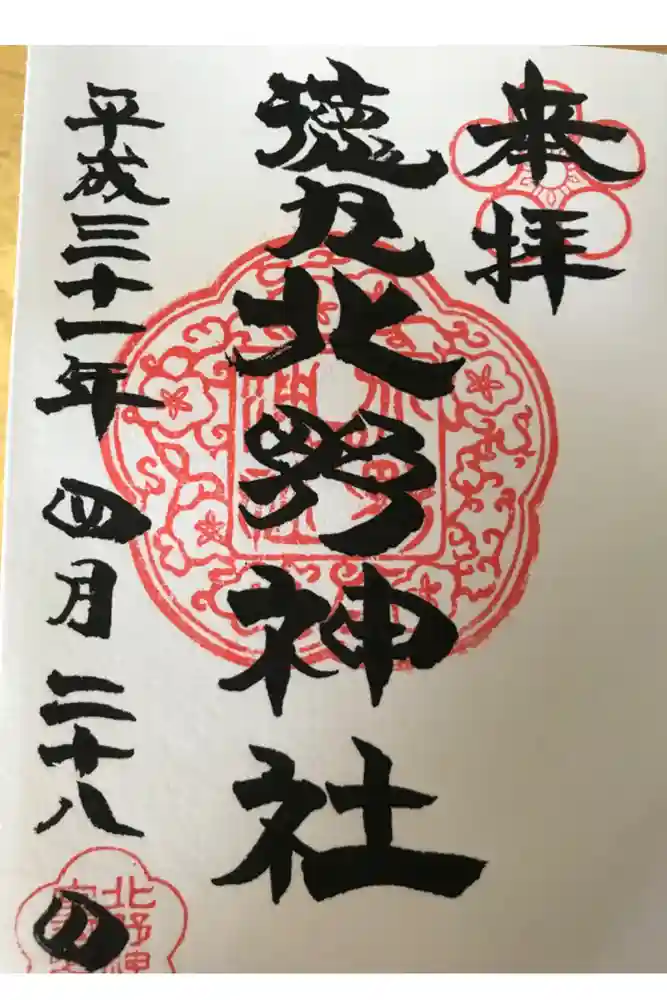 奉拝
徳丸北野神社
平成三十一年 四月 二十八日
北野神